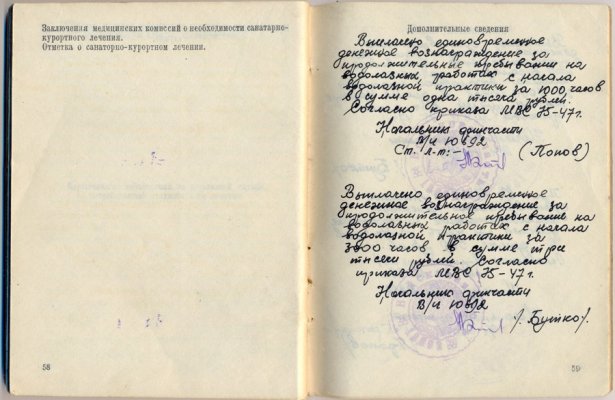 Заключения медицинских комиссий о необходимости санаторно-
курортного лечения.
Отметка о санаторно-курортном лечении.
58
Дополнительные сведения
Выплачено единовременное
денежное вознаграждение за
продолжительные пребывании на
водолазных работах с начала
водолазной практики за 1000 часов
в сумме одна тысяча рублей.
Согласно приказа МВС 75-47г.
Начальник финчасти
В/ч 10892
Ст. л-т:-
(Попов)
Выплачено единовременное
денежное вознаграждение за
продолжительное пребывание на
водолазных работах с начала
водолазной практики за
3000 часов в сумме три
тысечи рублей. Согласно
приказа МВС 75-47г.
Начальник финчасти
В/ч 10892
/. Бутко/.
59